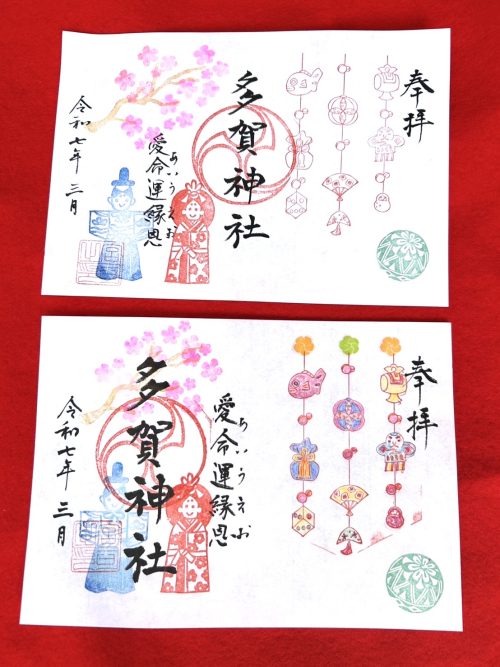 奉拝
多賀神社
愛命運縁恩
あいうえお
令和七年 三月
奉拝
愛命運縁恩
あいうえお
多賀神社
令和七年 三月